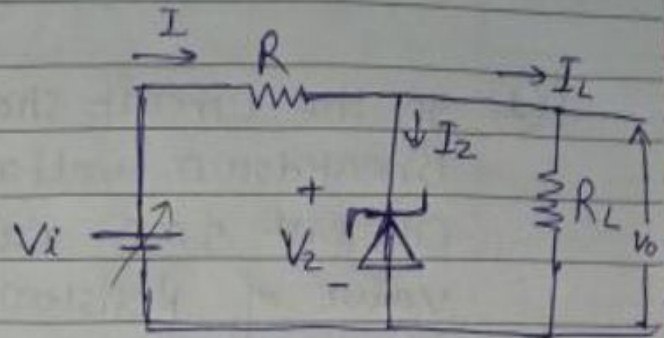 I
R
I_L
I_Z
+
Vi
V_Z
-
R_L
v_o